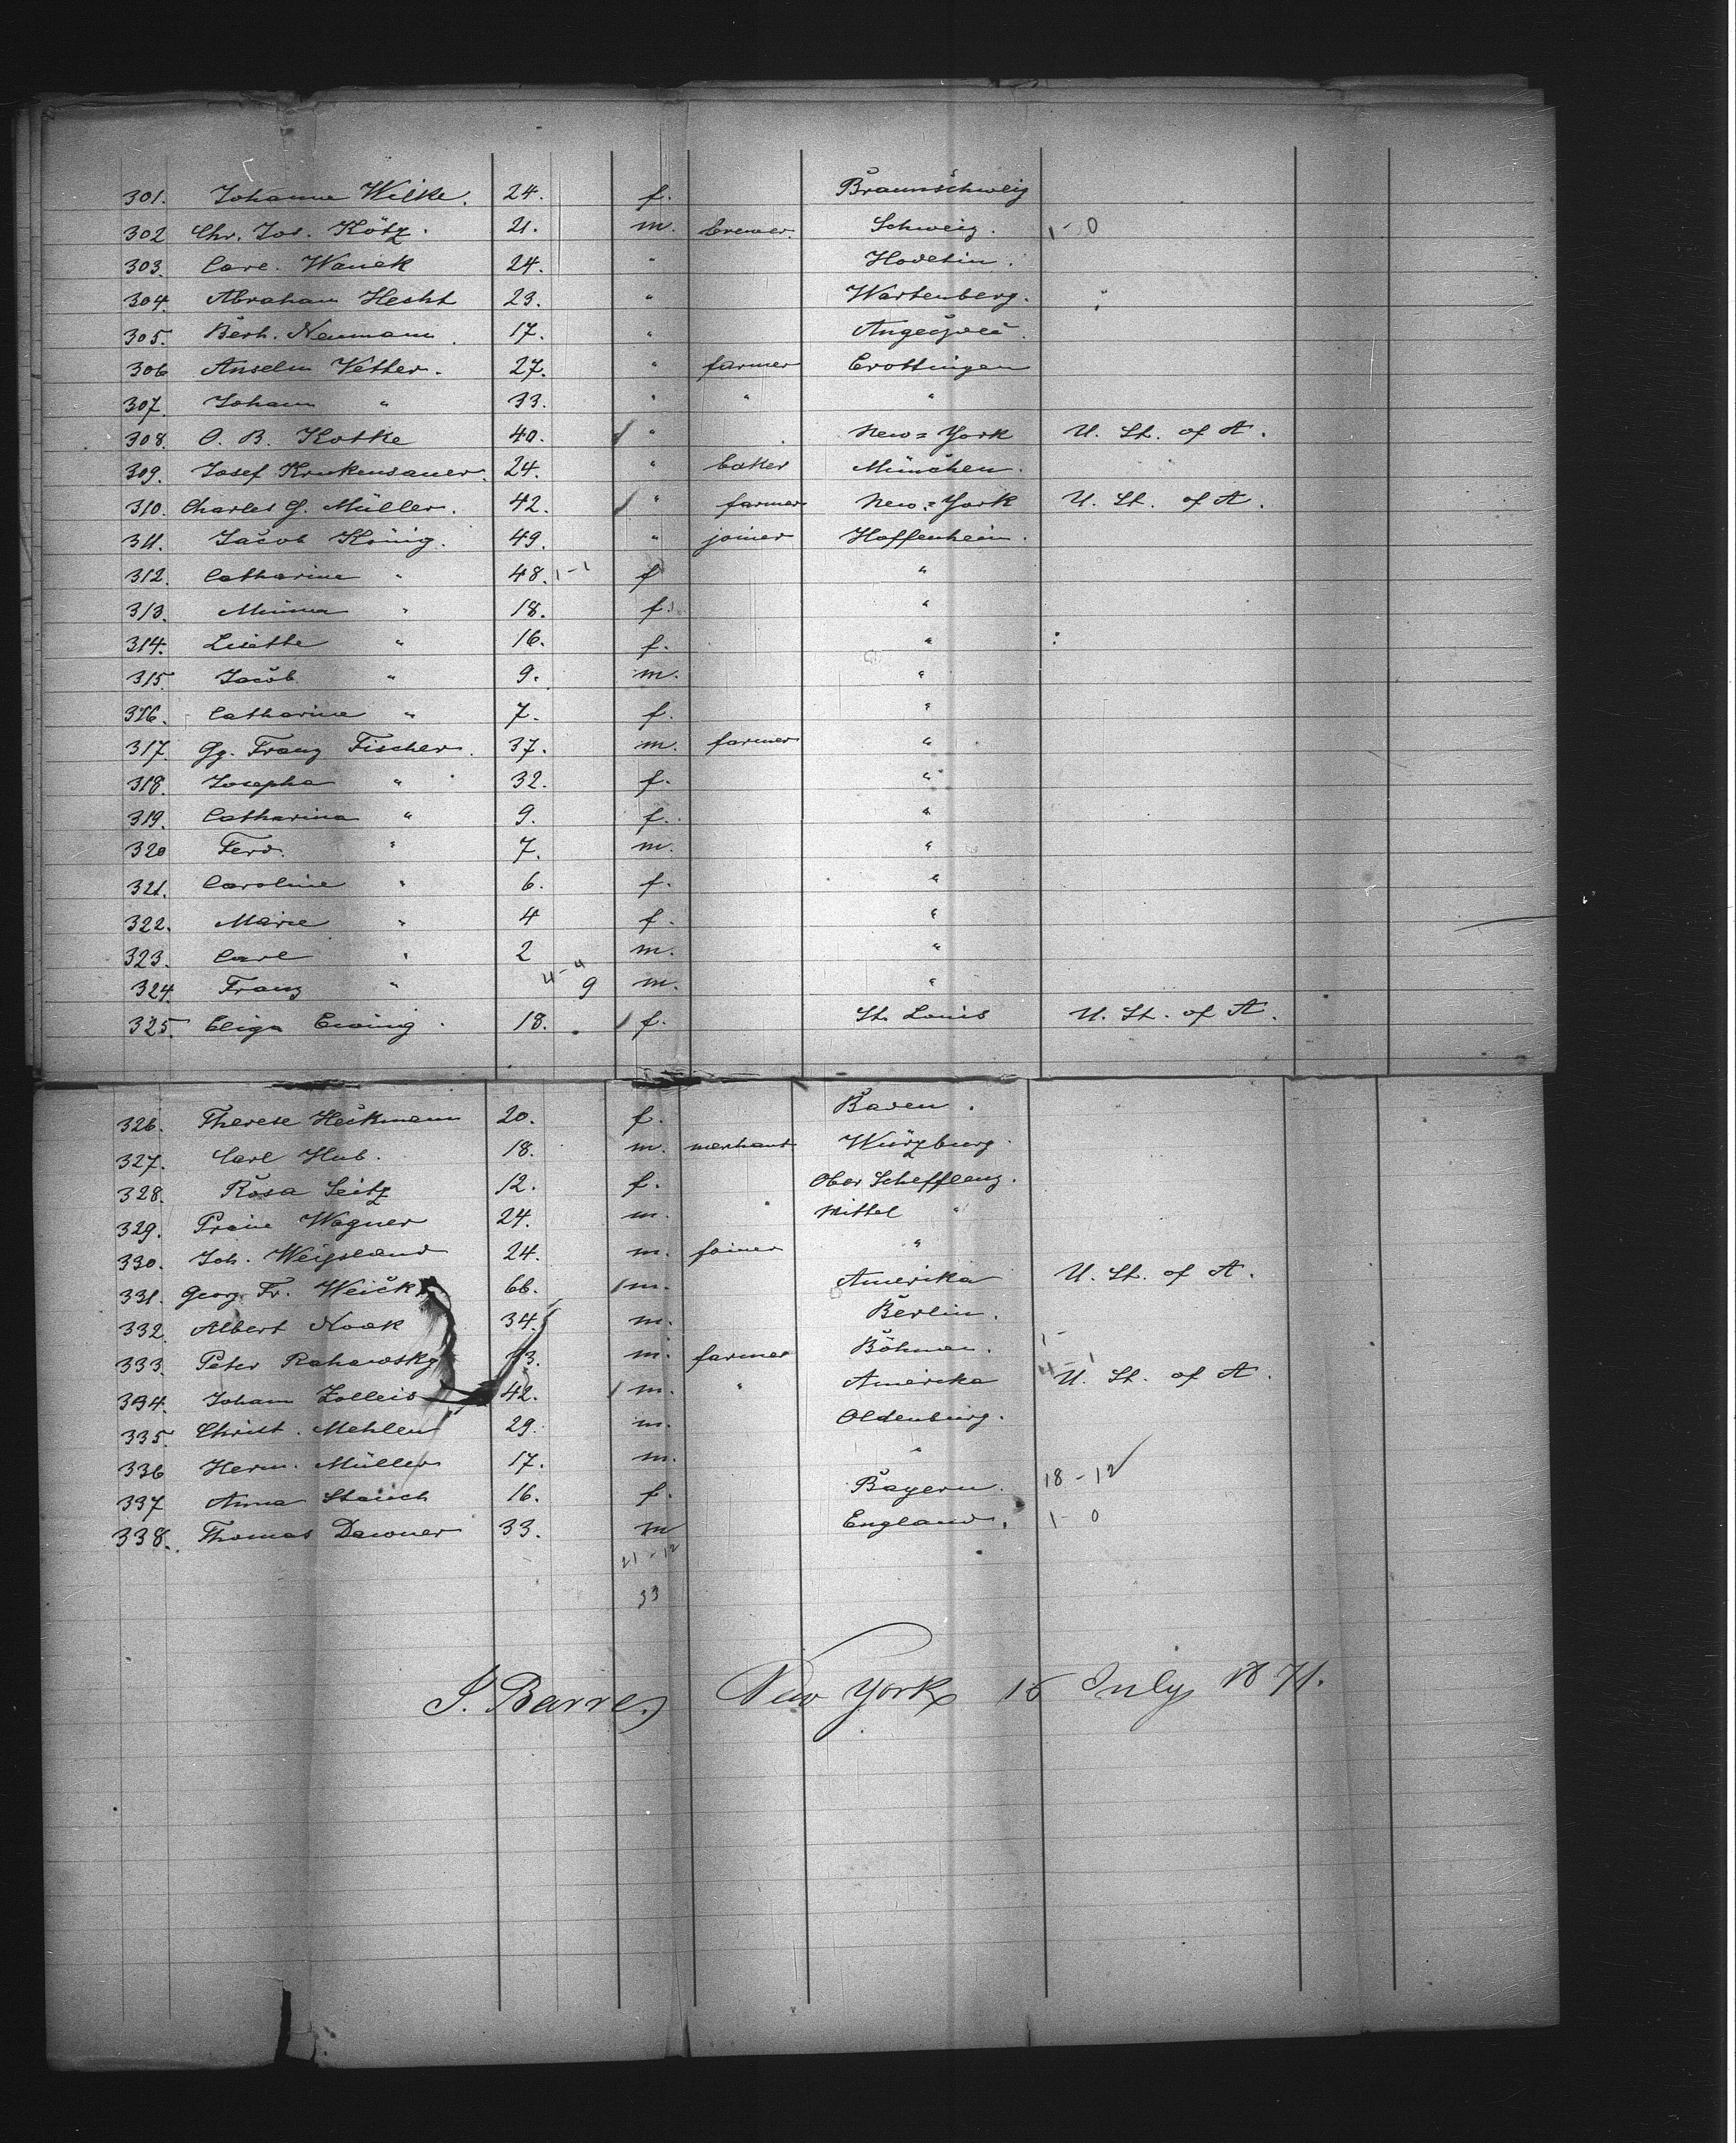 301. Johanne Wilke. 24. f. Braunschweig
302 Chr. Jos. Kötz. 21. m. brewer. Schweig. 1-0
303. Carl Wanek 24. " Hodetin.
304. Abraham Hecht 23. " Wartenberg.
305. Berh. Neumann. 17. "
306 Anselm Vetter. 27. " farmer Crottingen
307. Johann " 33. " " "
308. O. B. Kotke 40. " New=York U. St. of A.
309. Josef Krukensauer. 24. " baker München.
310. Charles G. Müller. 42. " farmer New=York U. St. of A.
311. Jacob König. 49. " joiner Hoffenheim.
312. Catharine " 48. 1-1 f "
313. Minna " 18. f. "
314. Lisette " 16. f. "
315 Jacob " 9. m. "
316. Catharina " 7. f. "
317. Gg. Franz Fischer. 37. m. farmer "
318. Josepha " 32. f. "
319. Catharina " 9. f. "
320 Ferd. " 7. m. "
321. Caroline " 6. f. "
322. Marie " 4 f. "
323. Carl " 2 m. "
324. Franz " 4-4 9 m. "
325. Eliza Ewing. 18. f. St. Louis U. St. of A.
326. Therese Heckmann 20. f. Baden.
327. Carl Hub. 18. m. merchant Würzburg.
328. Rosa Seitz 12. f. Ober Schefflenz.
329. Wagner 24. m. Mittel "
330. Joh. Weissland 24. m. joiner "
331. Georg. Fr. 66. m. Amerika U. St. of A.
332. Albert Noak 34. m. Berlin.
333. Peter Rahawsky 33. m. farmer Böhmen. 1-
334. Johann Zolleis 42. m. " Amerika 4-1 U. St. of A.
335. Christ. Mehlen 29. m. Oldenburg.
336 Herm. Müller 17. m. "
337 Anna Stauch 16. f. Bayern. 18-12
338. Thomas Dawner 33. m England. 1-0
21-12
33
J. Barre, New York 15 July 1871.